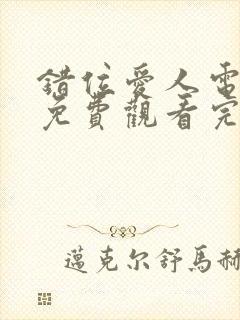 錯位愛人電
免費觀看完
邁克尔舒馬赫